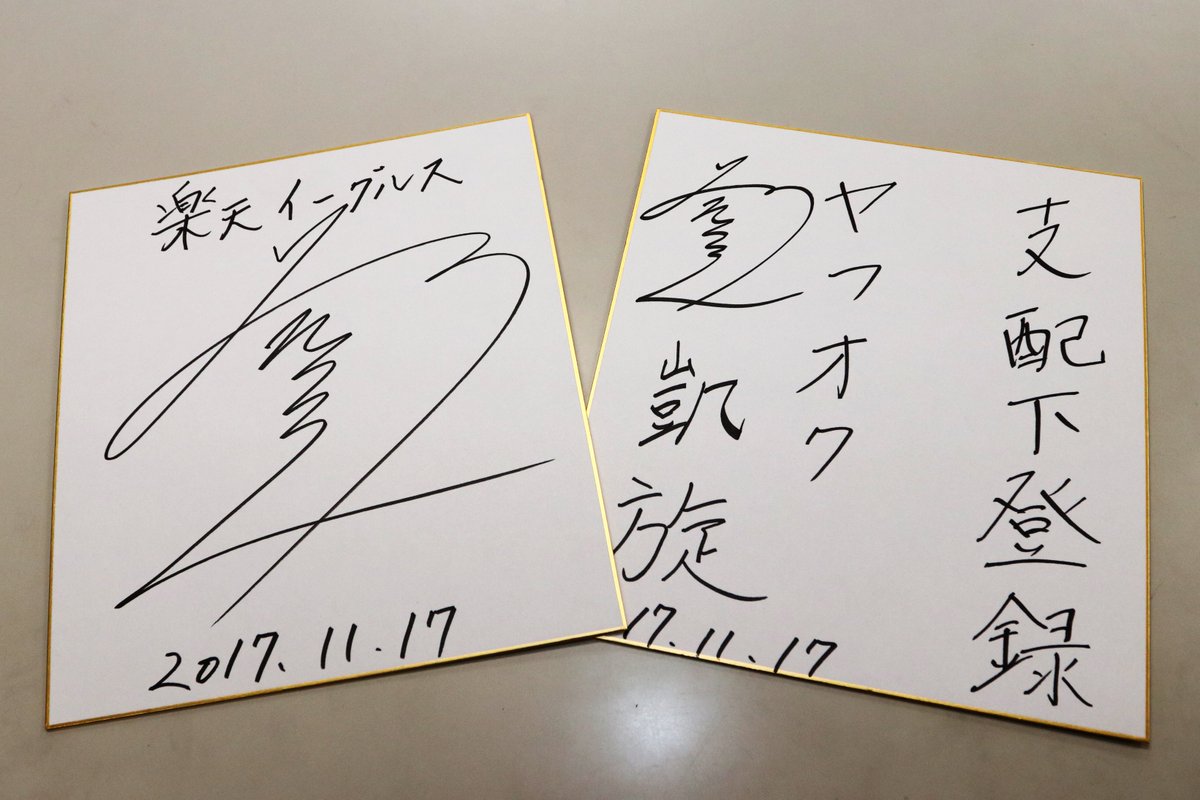 楽天イーグルス
2017.11.17
支配下登録
ヤフオク
凱旋
17.11.17